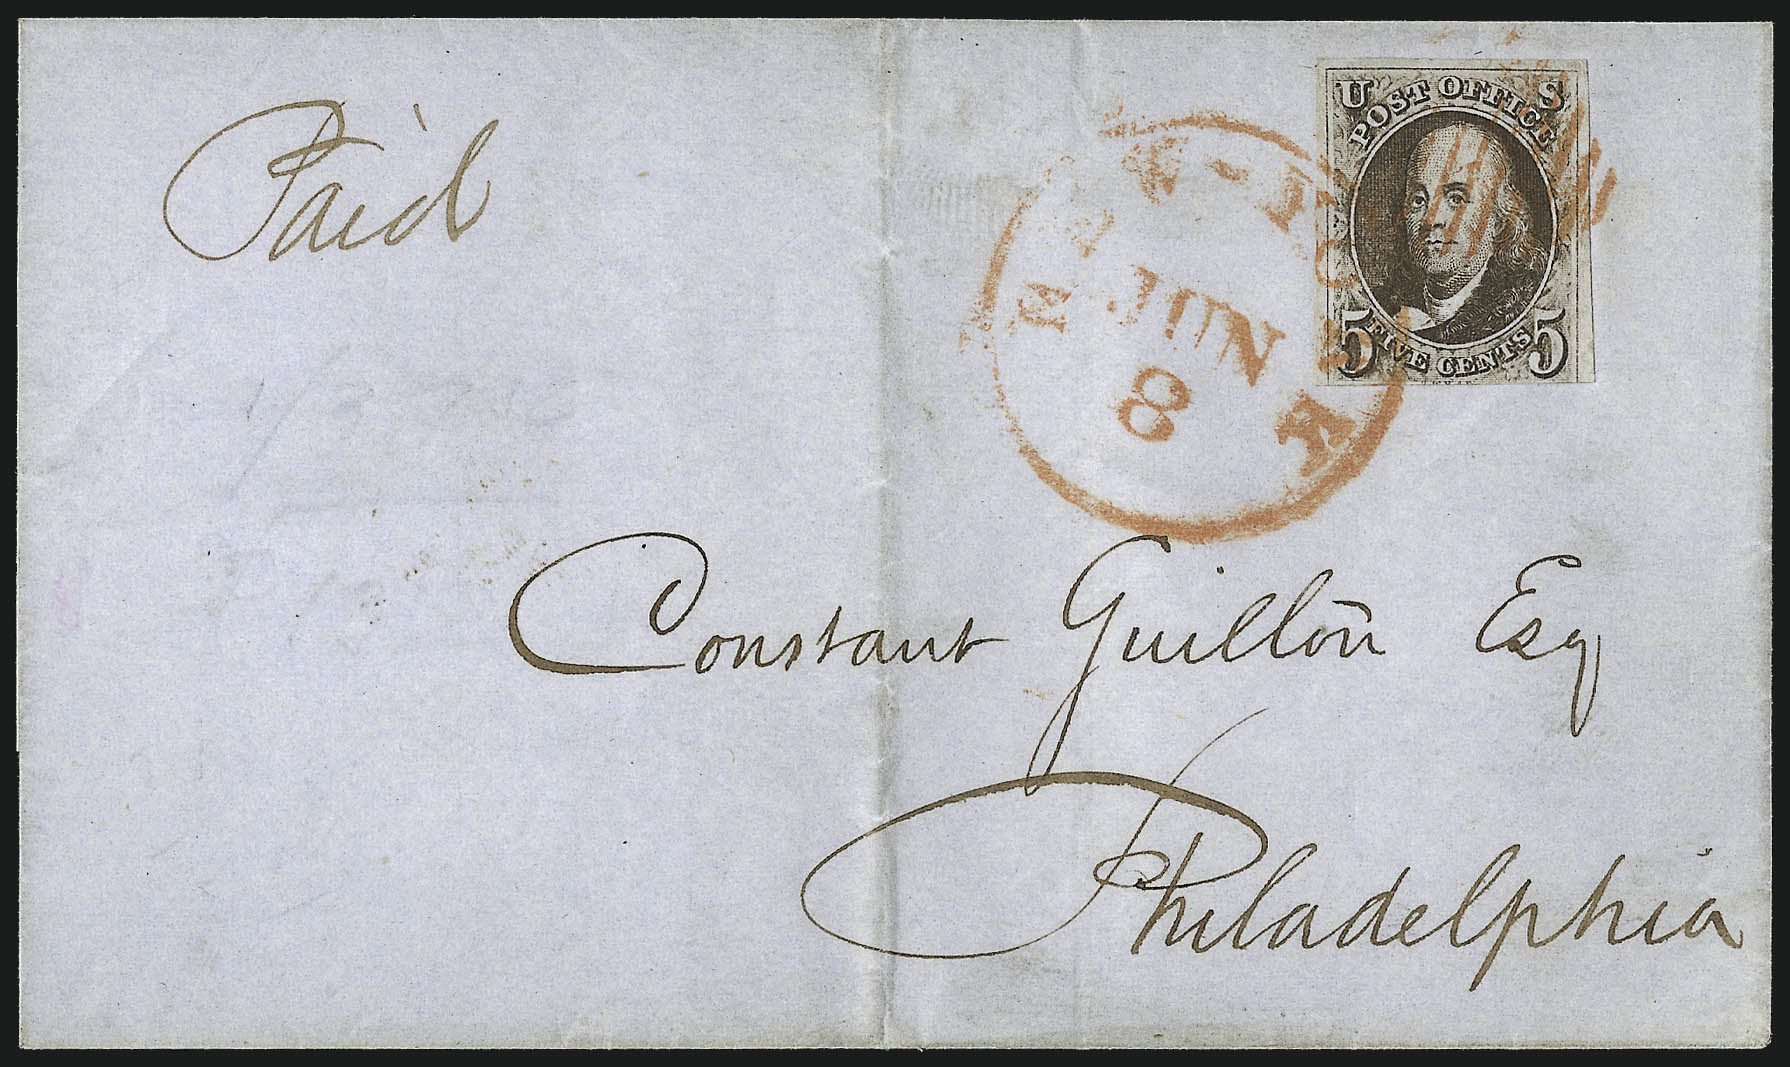 Paid
U S
POST OFFICE
5 FIVE CENTS 5
NEW-YORK
JUN
8
Constant Guillou Esq
Philadelphia